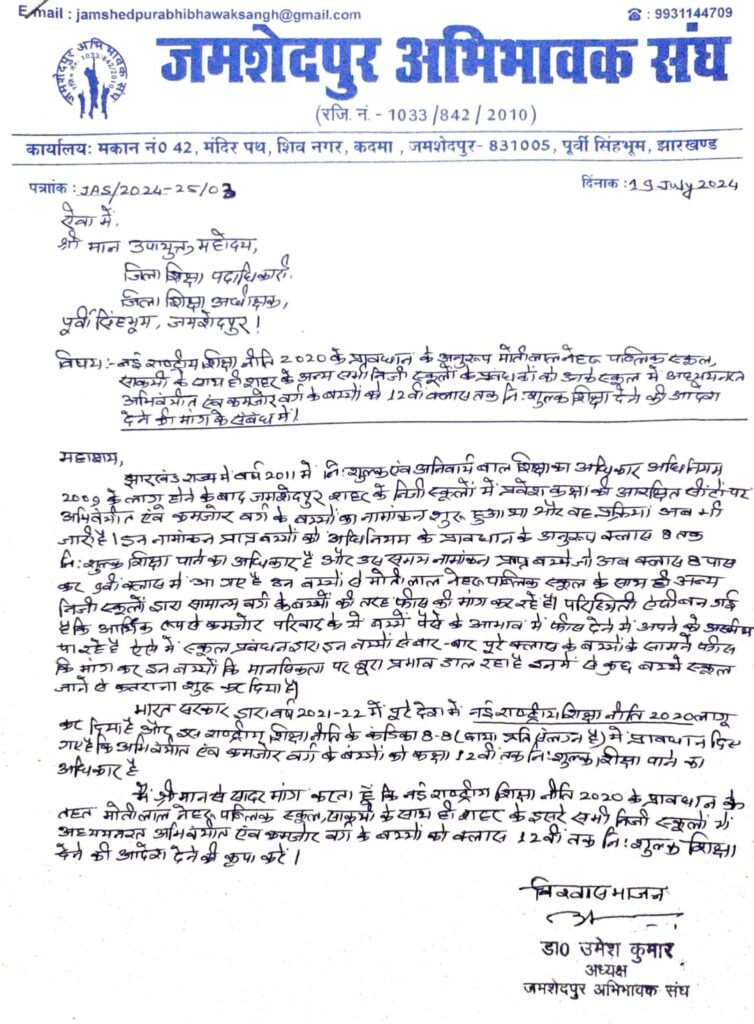 E-mail : jamshedpurabhibhawaksangh@gmail.com
☎ : 9931144709
जमशेदपुर अभिभावक संघ
जमशेदपुर अभिभावक संघ
(रजि. नं. - 1033 /842 / 2010)
कार्यालय: मकान नं0 42, मंदिर पथ, शिव नगर, कदमा , जमशेदपुर- 831005, पूर्वी सिंहभूम, झारखण्ड
पत्रांक : JAS/2024-25/03
दिनांक : 19 July 2024
सेवा में,
श्री मान उपायुक्त महोदय,
जिला शिक्षा पदाधिकारी,
जिला शिक्षा अधीक्षक,
पूर्वी सिंहभूम, जमशेदपुर !
विषय:- नई राष्ट्रीय शिक्षा नीति 2020 के प्रावधान के अनुरूप मोतीलाल नेहरू पब्लिक स्कूल,
साकची के साथ ही शहर के अन्य सभी निजी स्कूलों के प्रबंधकों को उनके स्कूल में अध्ययनरत
अभिवंचीत एंव कमजोर वर्ग के बच्चों को 12वीं क्लास तक नि:शुल्क शिक्षा देने की आदेश
देने की मांग के संबंध में।
महाशय,
झारखंड राज्य में वर्ष 2011 में नि:शुल्क एवं अनिवार्य बाल शिक्षा का अधिकार अधिनियम
2009 के लागू होने के बाद जमशेदपुर शहर के निजी स्कूलों में प्रवेश कक्षा की आरक्षित सीटों पर
अभिवंचीत एंव कमजोर वर्ग के बच्चों का नामांकन शुरू हुआ था और वह प्रक्रिया अब भी
जारी है। इन नामांकन प्राप्त बच्चों को अधिनियम के प्रावधान के अनुरूप क्लास 8 तक
नि:शुल्क शिक्षा पाने का अधिकार है और उस समय नामांकन प्राप्त बच्चे जो अब क्लास 8 पास
कर 9वीं क्लास में आ गए है उन बच्चों से मोतीलाल नेहरू पब्लिक स्कूल के साथ ही अन्य
निजी स्कूलों द्वारा सामान्य वर्ग के बच्चों की तरह फीस की मांग कर रहे है। परिस्थिती ऐसी बन गई
है कि आर्थिक रूप से कमजोर परिवार के ये बच्चें पैसे के आभाव में फीस देने में अपने को असमर्थ
पा रहे है ऐसे में स्कूल प्रबंधन द्वारा इन बच्चों से बार-बार पूरे क्लास के बच्चों के सामने फीस
कि मांग कर इन बच्चों कि मानसिकता पर बूरा प्रभाव डाल रहा है इनमें से कुछ बच्चे स्कूल
जाने से कतराना शुरू कर दिया है।
भारत सरकार द्वारा वर्ष 2021-22 में पूरे देश में नई राष्ट्रीय शिक्षा नीति 2020 लागू
कर दिया है और इस राष्ट्रीय शिक्षा नीति के कंडिका 8-8 (छाया प्रति संलग्न है) में प्रावधान दिए
गए है कि अभिवंचीत एंव कमजोर वर्ग के बच्चों को कक्षा 12वीं तक नि:शुल्क शिक्षा पाने का
अधिकार है
मैं श्रीमान से सादर मांग करता हूँ कि नई राष्ट्रीय शिक्षा नीति 2020 के प्रावधान के
तहत मोतीलाल नेहरू पब्लिक स्कूल, साकची के साथ ही शहर के दुसरे सभी निजी स्कूलों में
अध्ययनरत अभिवंचीत एंव कमजोर वर्ग के बच्चों को क्लास 12वीं तक नि:शुल्क शिक्षा
देने की आदेश देने की कृपा करें।
विश्वासभाजन
डा0 उमेश कुमार
अध्यक्ष
जमशेदपुर अभिभावक संघ